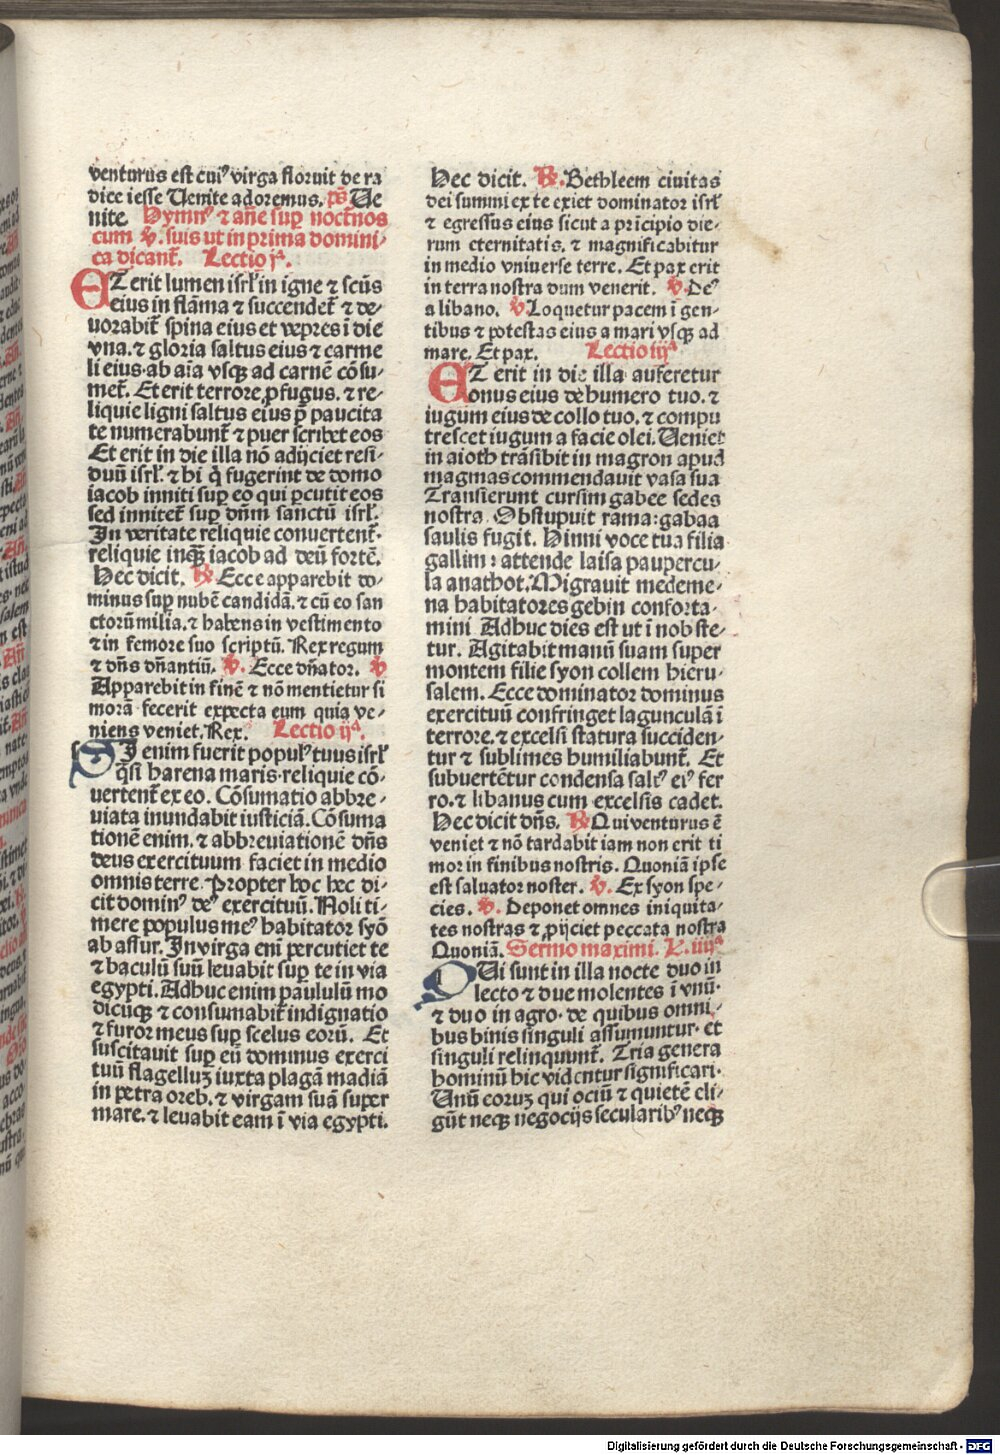 venturus est cuiꝰ virga floruit de ra
dice iesse Uenite adoremus. p̃s Ue
nite. Hymnꝰ ⁊ añe suꝑ noct̃nos
cum ℣. suis ut in prima domini-
ca dicant̃. Lectio jª.
ET erit lumen isrl̃ in igne ⁊ scũs
eius in flãma ⁊ succendet̃ ⁊ de-
uorabit̃ spina eius et vepres ĩ die
vna. ⁊ gloria saltus eius ⁊ carme
li eius ab aĩa vsqꝫ ad carnẽ cõsu-
met̃. Et erit terrore ꝓfugus. ⁊ re-
liquie ligni saltus eius p̃ paucita
te numerabunt̃ ⁊ puer scribet eos
Et erit in die illa nõ adijciet resi-
duũ isrl̃. ⁊ hi q̃ fugerint de domo
iacob inniti suꝑ eo qui ꝑcutit eos
sed innitet̃ suꝑ dñm sanctũ isrl̃.
In veritate reliquie conuertent̃.
reliquie inqꝫ iacob ad deũ fortẽ.
Hec dicit. ℟. Ecce apparebit do-
minus suꝑ nubẽ candidã. ⁊ cũ eo san
ctorũ milia. ⁊ habens in vestimento
⁊ in femore suo scriptũ. Rex regum
⁊ dñs dñantiũ. ℣. Ecce dñator. ℣
Apparebit in finẽ ⁊ nõ mentietur si
morã fecerit expecta eum quia ve-
niens veniet. Rex. Lectio ijª.
SI enim fuerit populꝰ tuus isrl̃
q̃si harena maris. reliquie cõ-
uertent̃ ex eo. Cõsumatio abbre-
uiata inundabit iusticiã. Cõsuma
tionẽ enim. ⁊ abbreuiationẽ dñs
deus exercituum faciet in medio
omnis terre. Propter hoc hec di-
cit dominꝰ deꝰ exercituũ. Noli ti-
mere populus meꝰ habitator syõ
ab assur. In virga eni ̃ percutiet te
⁊ baculũ suũ leuabit suꝑ te in via
egypti. Adhuc enim paululũ mo
dicũqꝫ ⁊ consumabit̃ indignatio
⁊ furor meus suꝑ scelus eorũ. Et
suscitauit suꝑ eũ dominus exerci
tuũ flagelluꝫ iuxta plagã madiã
in petra oreb. ⁊ virgam suã super
mare. ⁊ leuabit eam ĩ via egypti.
Hec dicit. ℟. Bethleem ciuitas
dei summi ex te exiet dominator isrl̃
⁊ egressus eius sicut a prĩcipio die-
rum eternitatis. ⁊ magnificabitur
in medio vniuerse terre. Et pax erit
in terra nostra dum venerit. ℣. Deꝰ
a libano. ℣. Loquetur pacem ĩ gen-
tibus ⁊ potestas eius a mari vsqꝫ ad
mare. Et pax. Lectio iijª
ET erit in die illa auferetur
onus eius de humero tuo. ⁊
iugum eius de collo tuo. ⁊ compu
trescet iugum a facie olei. Ueniet
in aioth trãsibit in magron apud
magmas commendauit vasa sua
Transierunt cursim gabee sedes
nostra. Obstupuit rama: gabaa
saulis fugit. Hinni voce tua filia
gallim: attende laisa paupercu-
la anathot. Migrauit medeme-
na habitatores gebin conforta-
mini Adhuc dies est ut ĩ nob ste-
tur. Agitabit manũ suam super
montem filie syon collem hieru-
salem. Ecce dominator dominus
exercituũ confringet lagunculã ĩ
terrore. ⁊ excelsi statura succiden-
tur ⁊ sublimes humiliabunt̃. Et
subuertẽtur condensa salꝰ eiꝰ fer
ro. ⁊ libanus cum excelsis cadet.
Hec dicit dñs. ℟ Qui venturus ẽ
veniet ⁊ nõ tardabit iam non erit ti
mor in finibus nostris. Quoniã ipse
est saluator noster. ℣. Ex syon spe-
cies. ℣. Deponet omnes iniquita-
tes nostras ⁊ ꝓijciet peccata nostra
Quoniã. Sermo maximi. L. iiijª
QUi sunt in illa nocte duo in
lecto ⁊ due molentes ĩ vnũ.
⁊ duo in agro. de quibus omni-
bus binis singuli assumuntur. et
singuli relinquunt̃. Tria genera
hominũ hic videntur significari.
Unũ eoruꝫ qui ociũ ⁊ quietẽ eli-
gũt neqꝫ negocijs secularibꝰ neqꝫ
Digitalisierung gefördert durch die Deutsche Forschungsgemeinschaft - DFG